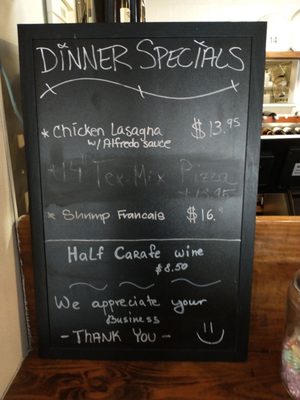 DINNER SPECIALS
* Chicken Lasagna $13.95
w/Alfredo sauce
14" Tex-Mix Pizza
* Shrimp Francais $16.
Half Carafe wine
$8.50
We appreciate your
Business
- THANK YOU -